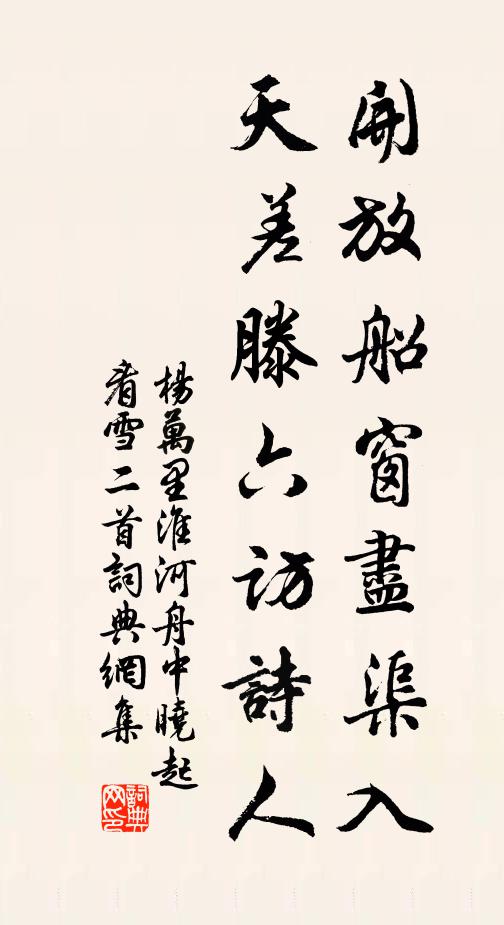 開放船窗盡渠入
天差滕六訪詩人
楊萬里淮河舟中曉起
看雪二首詞典網集
詞典
网印